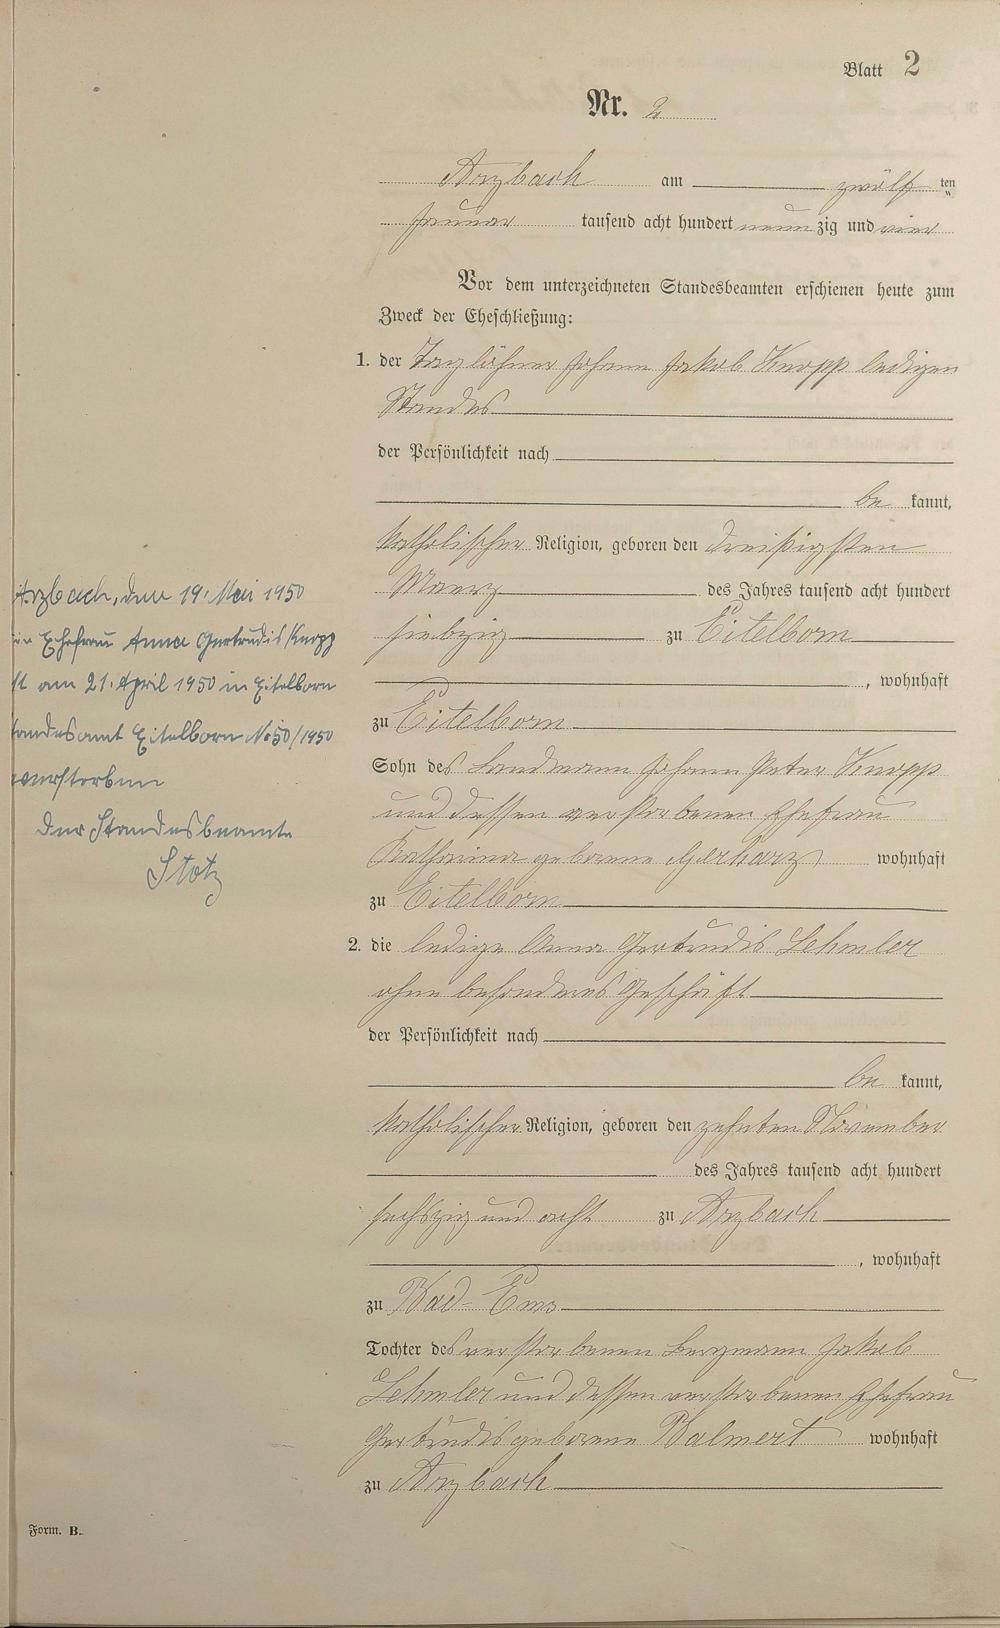 Blatt 2
Nr. 2
Arzbach am zwölf ten
Januar tausend acht hundert neunzig und vier
Vor dem unterzeichneten Standesbeamten erschienen heute zum
Zweck der Eheschließung:
1. der Taglöhner Johann Jakob Knopp ledigen
Standes
der Persönlichkeit nach
be kannt,
katholischer Religion, geboren den dreißigsten
Maerz des Jahres tausend acht hundert
siebzig zu Eitelborn
, wohnhaft
zu Eitelborn
Sohn des Landmann Johann Peter Knopp
und dessen verstorbenen Ehefrau
Katharina geborene Gerharz wohnhaft
zu Eitelborn
2. die ledige Anna Gertrudis Lehmler
ohne besonderes Geschäft
der Persönlichkeit nach
be kannt,
katholischer Religion, geboren den zehnten November
des Jahres tausend acht hundert
sechszig und acht zu Arzbach
, wohnhaft
zu Bad-Ems
Tochter des verstorbenen Bergmann Jakob
Lehmler und dessen verstorbenen Ehefrau
Gertrudis geborene Balmert wohnhaft
zu Arzbach
Arzbach, den 19. Mai 1950
Ehefrau Anna Gertrudis Knopp
am 21. April 1950 in Eitelborn
Standesamt Eitelborn No 50/1950
verstorben
Der Standesbeamte
Stotz
Form. B.